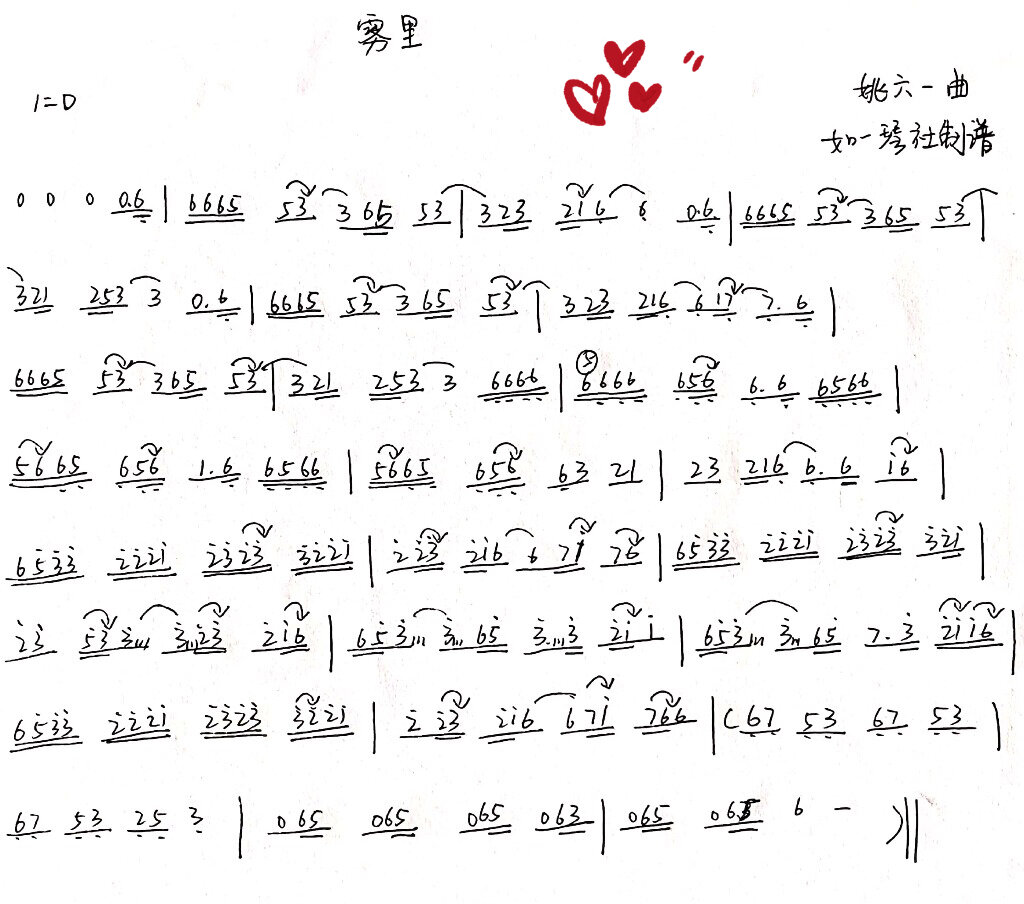 雾里
1=D
姚六一曲
如一琴社制谱
0 0 0 0.6 | 6665 53 365 53 | 323 216 6 0.6 | 6665 53 365 53 |
321 253 3 0.6 | 6665 53 365 53 | 323 216 617 7.6 |
6665 53 365 53 | 321 253 3 6666 | ⑤ 6666 656 6.6 6566 |
5665 656 1.6 6566 | 5665 656 63 21 | 23 216 6.6 i6 |
6533 2221 2323 3221 | 223 216 6 71 76 | 6533 2221 2323 321 |
23 53 3... 3...23 216 | 653... 3...65 3...3 21 1 | 653... 3...65 7.3 2116 |
6533 2221 2323 3221 | 2 23 216 671 766 | (67 53 67 53 |
67 53 25 3 | 065 065 065 063 | 065 065 6 - )‖